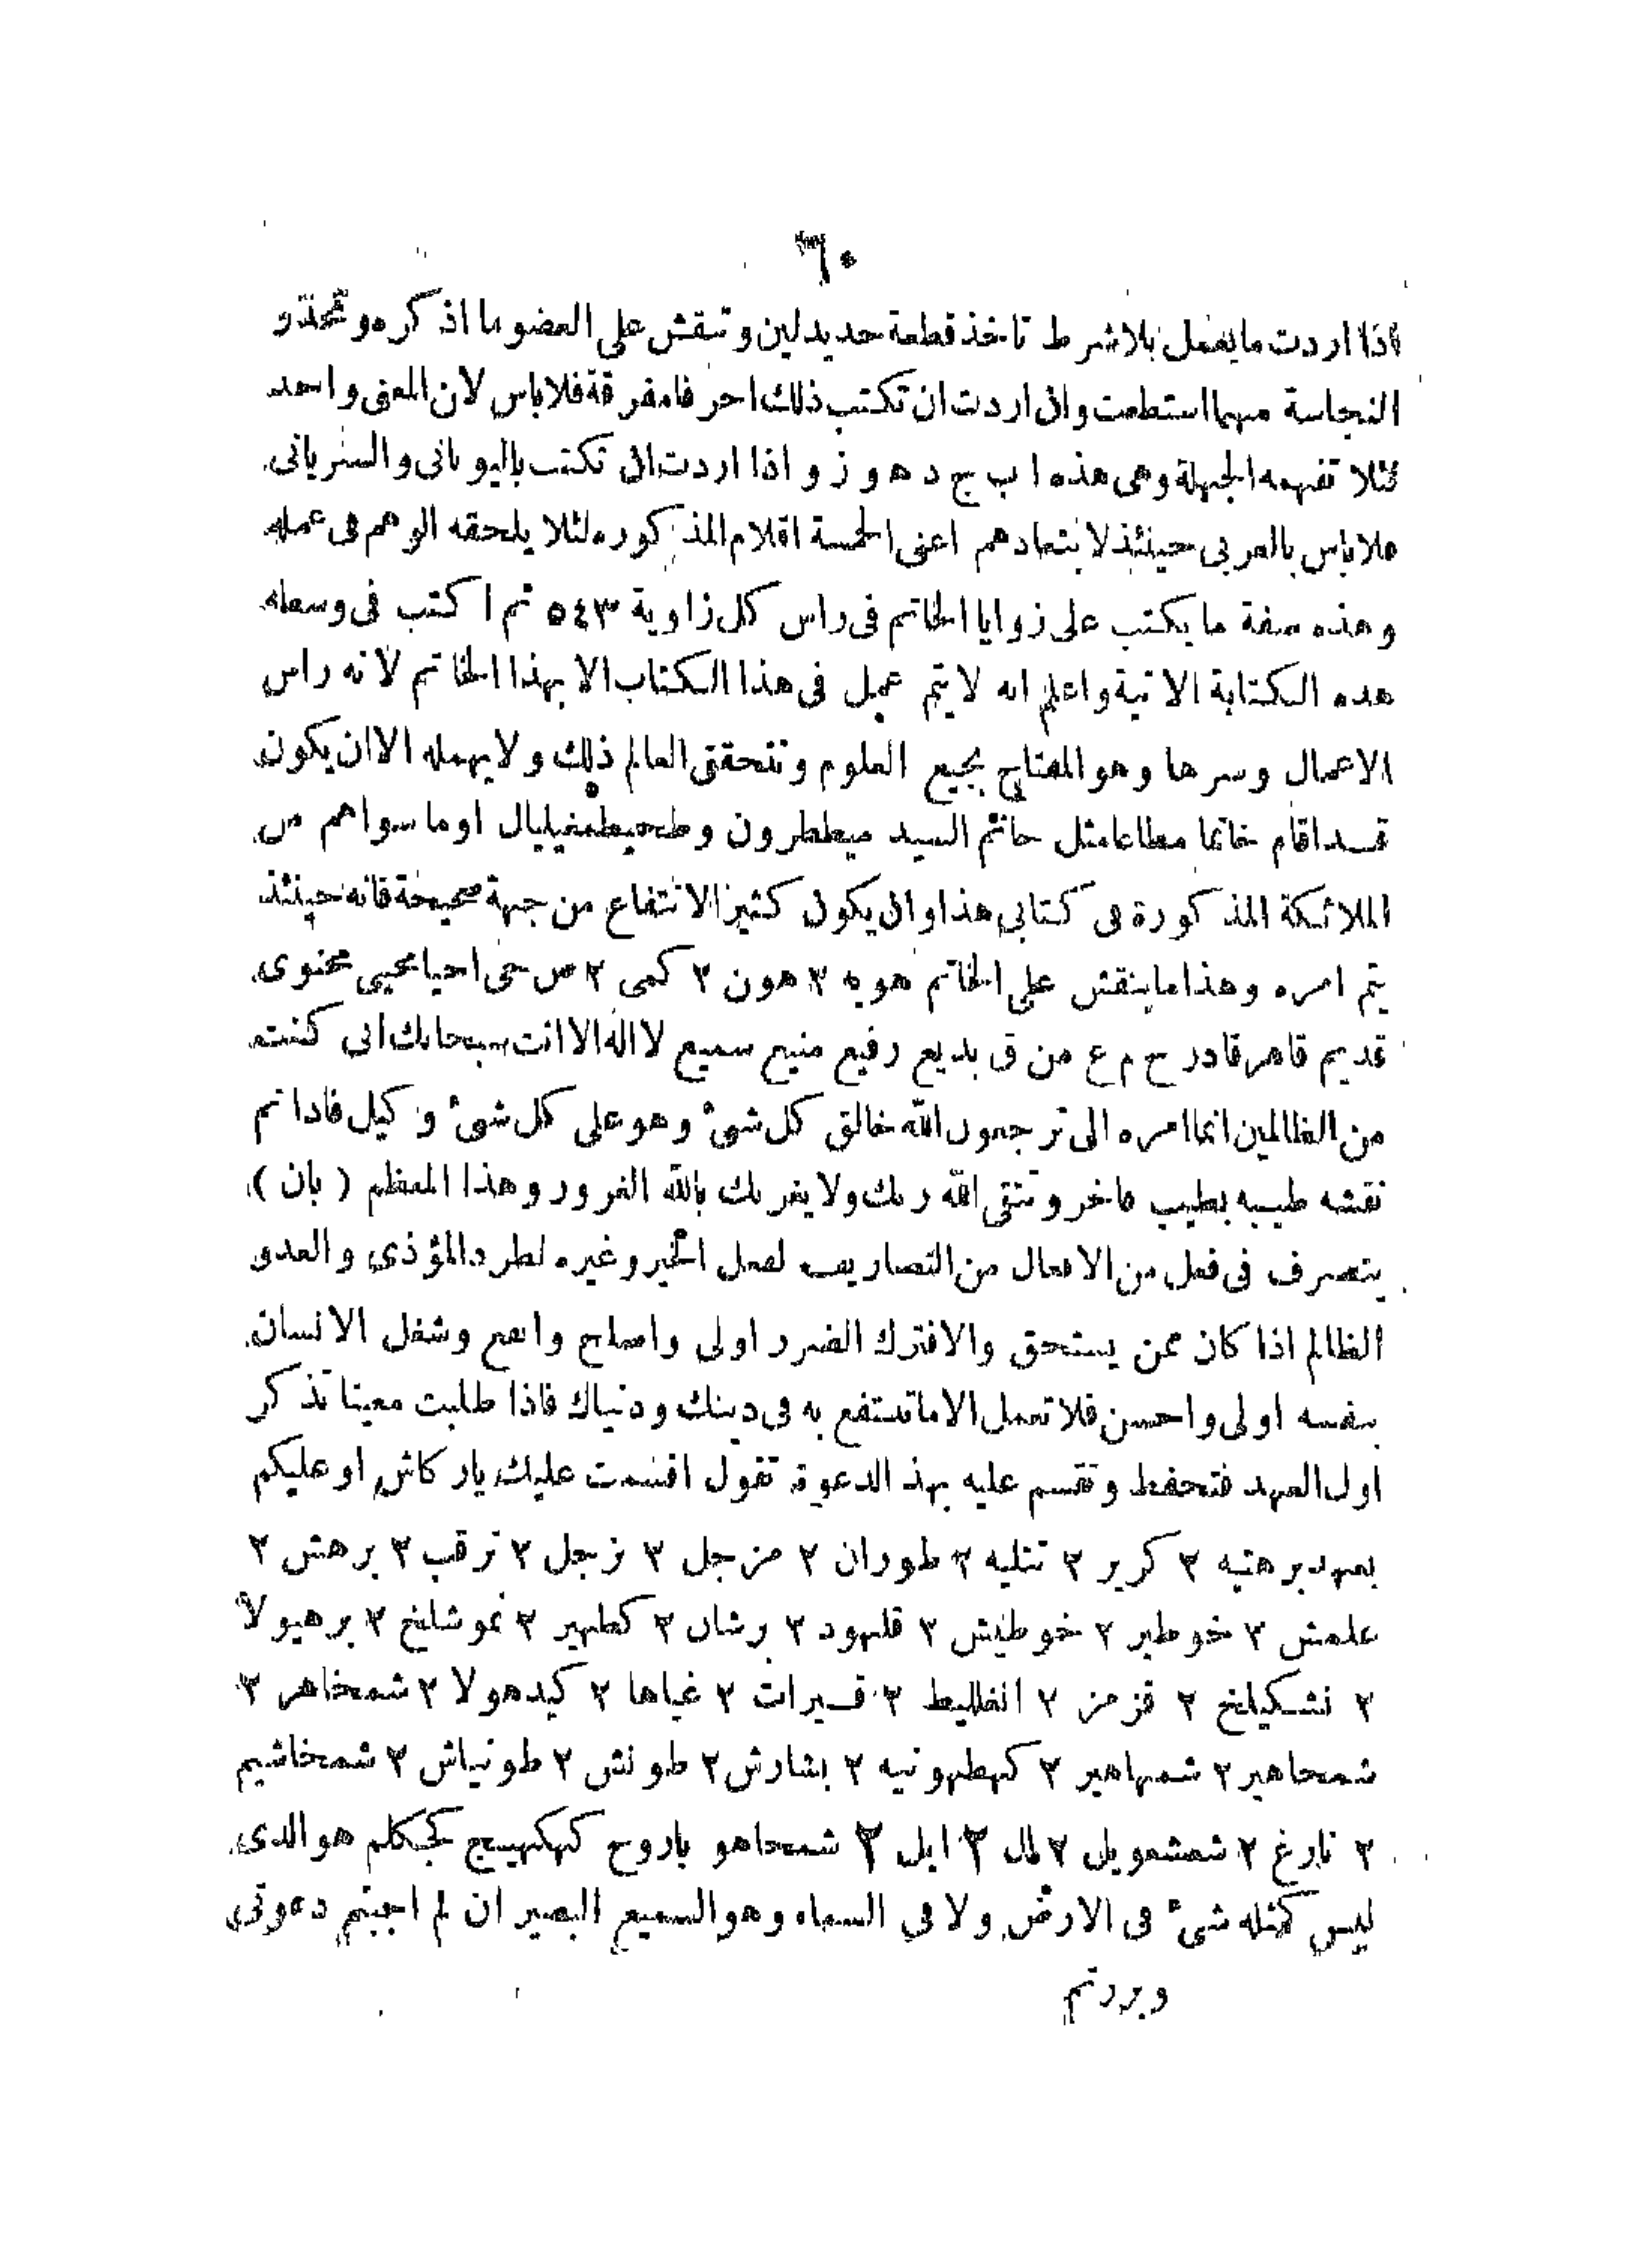 ٦٠
فاذا اردت ما يعمل بلا شرط تاخذ قطعة حديد لين وتنقش على العضو ما اذكره وتحذر
النجاسة مهما استطعت وان اردت ان تكتب ذلك احرفا مفرقة فلا باس لان المعنى واحد
لئلا تفهمه الجهلة وهى هذه ا ب ج د هـ و ز و اذا اردت ان تكتب باليونانى والسريانى
فلا باس بالعربى حينئذ لا بتعادهم اعنى الخمسة اقلام المذكوره لئلا يلحقه الوهم فى عمله
وهذه صفة ما يكتب على زوايا الخاتم فى راس كل زاوية ٥٤٣ ثم اكتب فى وسطه
هذه الكتابة الاتية واعلم انه لا يتم عمل فى هذا الكتاب الا بهذا الخاتم لانه راس
الاعمال وسرها وهو المفتاح بجميع العلوم وتتحقق العالم ذلك ولا يهمله الا ان يكون
قد اقام خاتما مطاعا مثل خاتم السيد ميططرون وطحيطمغيليال او ما سواهم من
الملائكة المذكورة فى كتابى هذا وان يكون كثير الانتفاع من جهة صحيحة فانه حينئذ
يتم امره وهذا ما ينقش على الخاتم هويه ٣ هون ٢ كمى ٢ ص حمى احيا محيى محنوى
قديم قاهر قادر ح م ع من ق بديع رفيع منيع سميع لا اله الا انت سبحانك انى كنت
من الظالمين انما امره الى ترجعون الله خالق كل شئ وهو على كل شئ وكيل فاذا تم
نقشه طيبه بطيب فاخر وتتقى الله ربك ولا يغرنك بالله الغرور وهذا المعظم ( بان )
يتصرف فى فعل من الافعال من التصاريف لفعل الخير وغيره لطرد المؤذى والعدو
الظالم اذا كان ممن يستحق والا فترك الضرر اولى واصلح وانفع وشغل الانسان
بنفسه اولى واحسن فلا تعمل الا ما تنتفع به فى دينك ودنياك فاذا طلبت معينا تذكر
اول العهد فتحفظ وتقسم عليه بهذ الدعوة تقول اقسمت عليك ياركاش او عليكم
بعهد برهتيه ٢ كرير ٢ تتليه ٢ طوران ٢ مزجل ٣ بزجل ٢ ترقب ٢ برهش ٢
علمش ٢ خوطير ٢ خوطيش ٢ قلنهود ٢ برشان ٢ كظهير ٢ نموشلخ ٢ برهيولا
٢ نشكيلخ ٢ قزمز ٢ انغلليط ٢ قبرات ٢ غياها ٢ كيدهولا ٢ شمخاهر ٢
شمخاهير ٢ شمهاهير ٢ كهطهونيه ٢ بشارش ٢ طونش ٢ طونياش ٢ شمخاشيم
٢ نارغ ٢ شمشمويل ٢ لمال ٢ ايل ٢ شمخاهو ياروح كهكهيج بجكلم هو الذى
ليس كمثله شئ فى الارض ولا فى السماء وهو السميع البصير ان لم اجبتم دعوتى
وبررتم